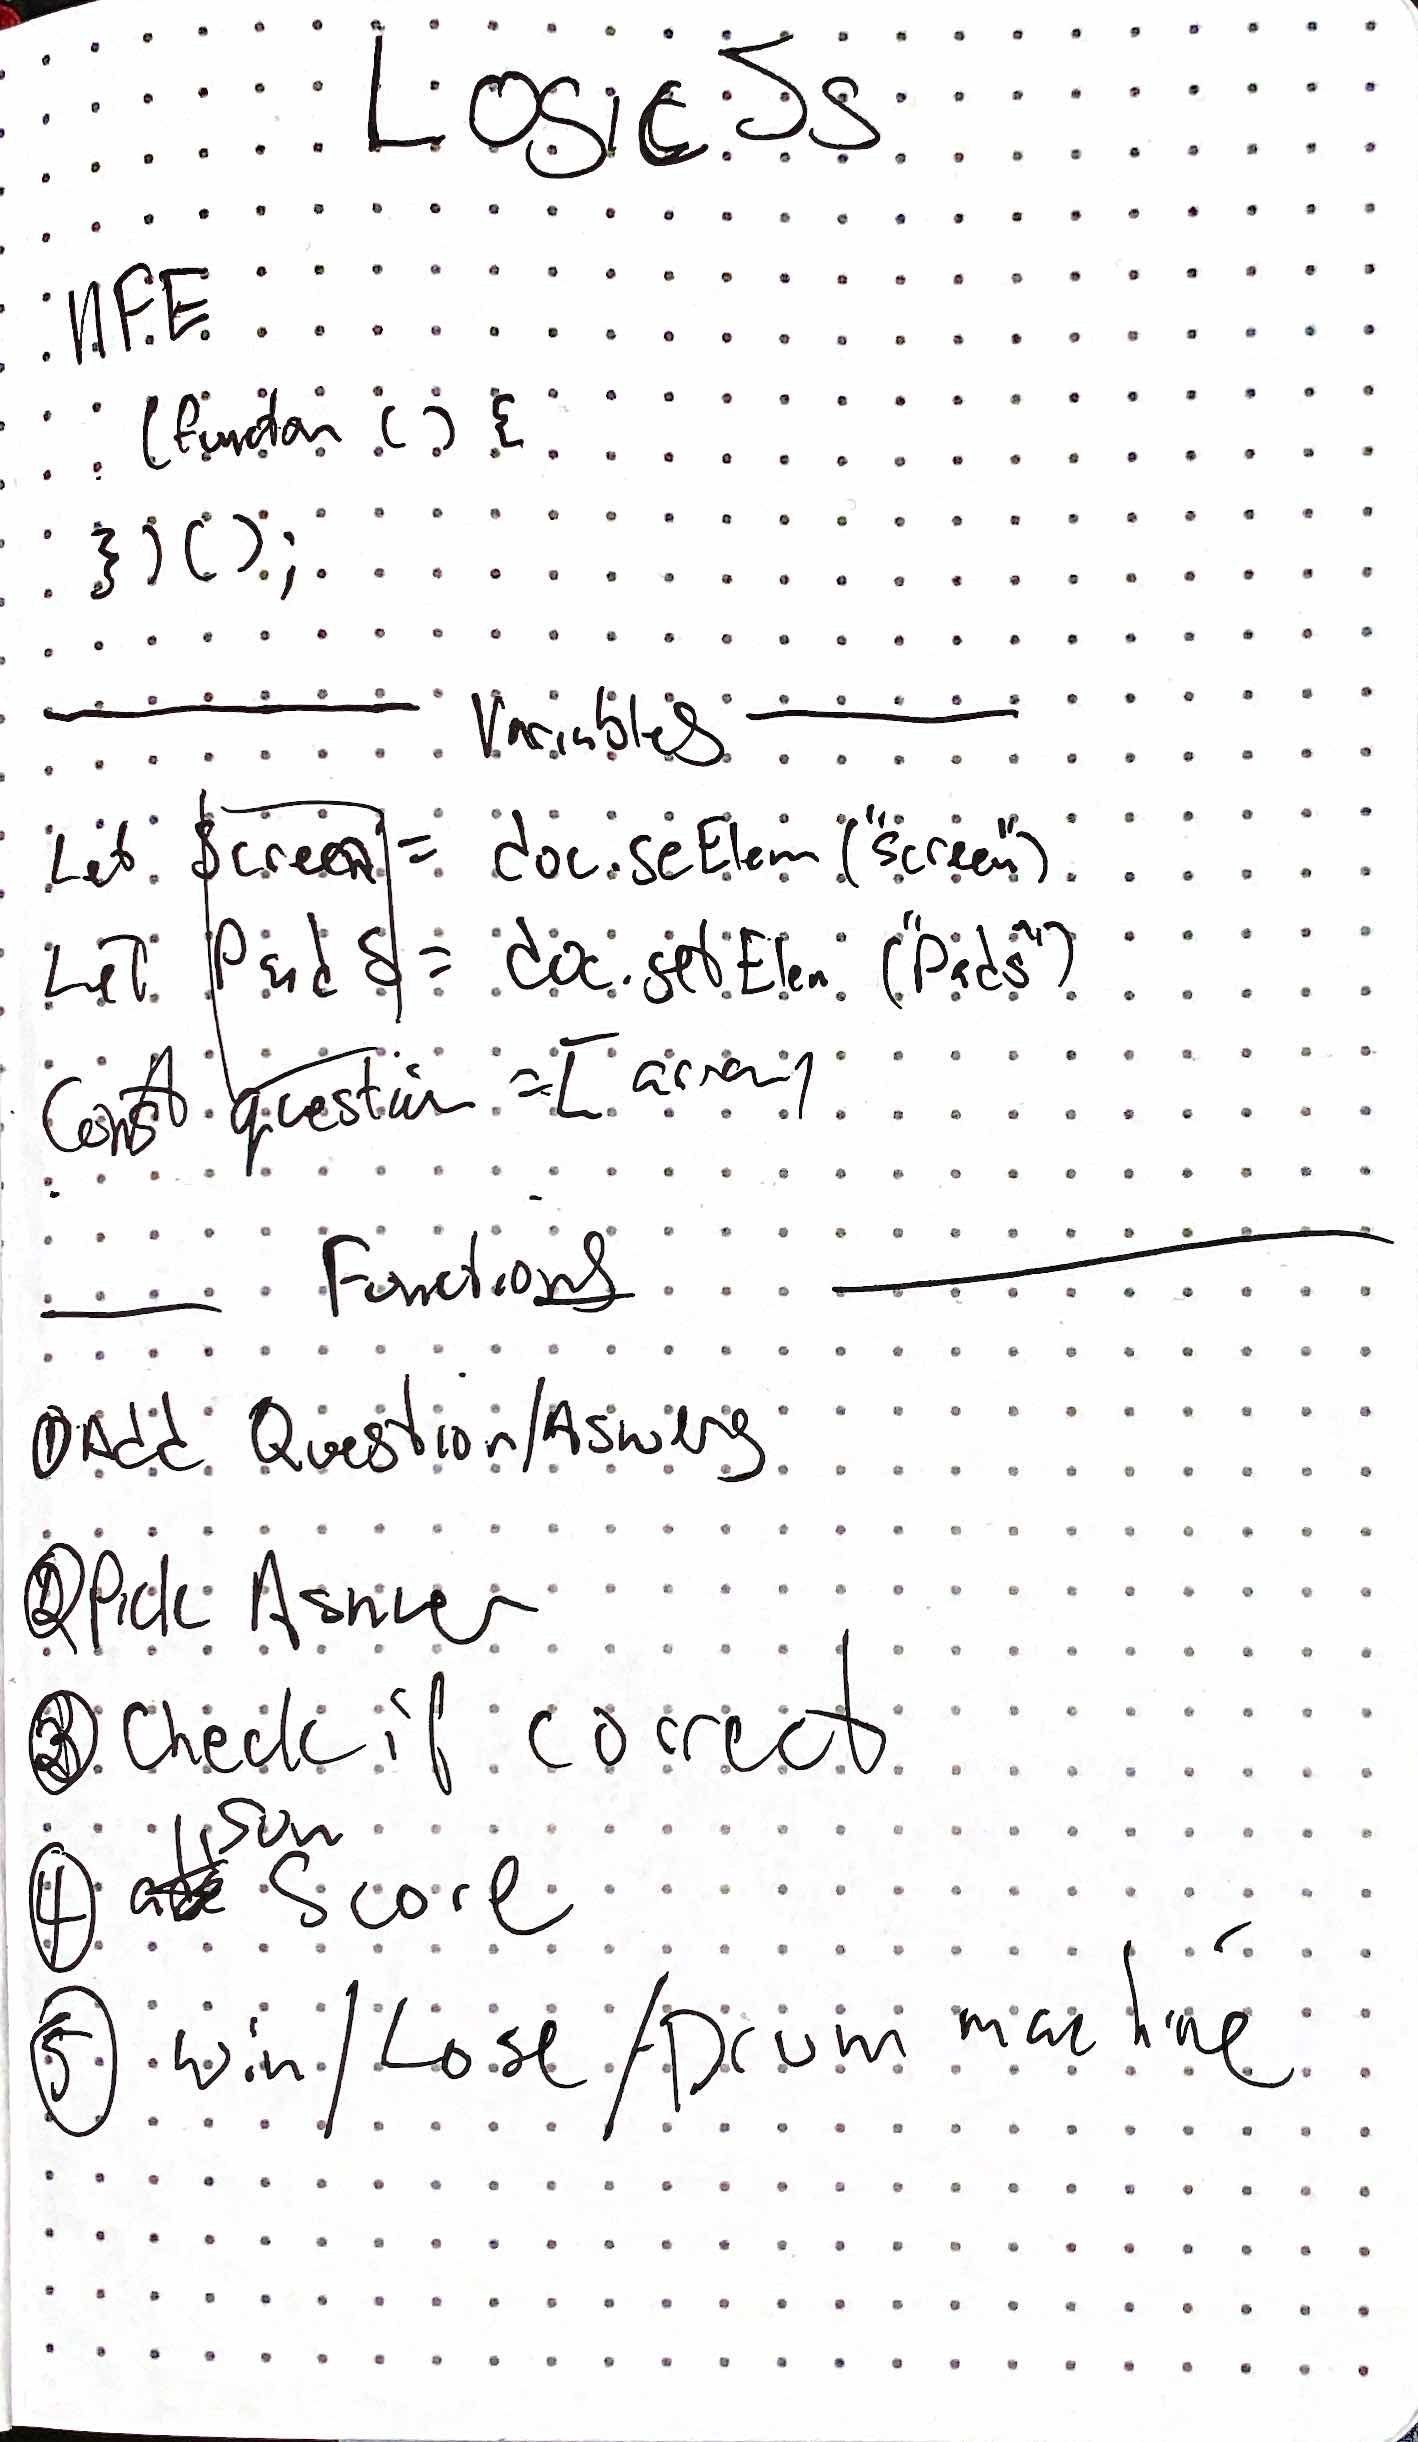 Logic Js
IIFE
(function () {
})();
Variables
Let Screen = doc.getElem ("screen")
Let Pads = doc.getElem ("Pads")
Const question = [ array
Functions
① Add Question/Aswers
② Pick Asnwer
③ Check if correct
Json
④ Score
⑤ win/Lose/Drum machine